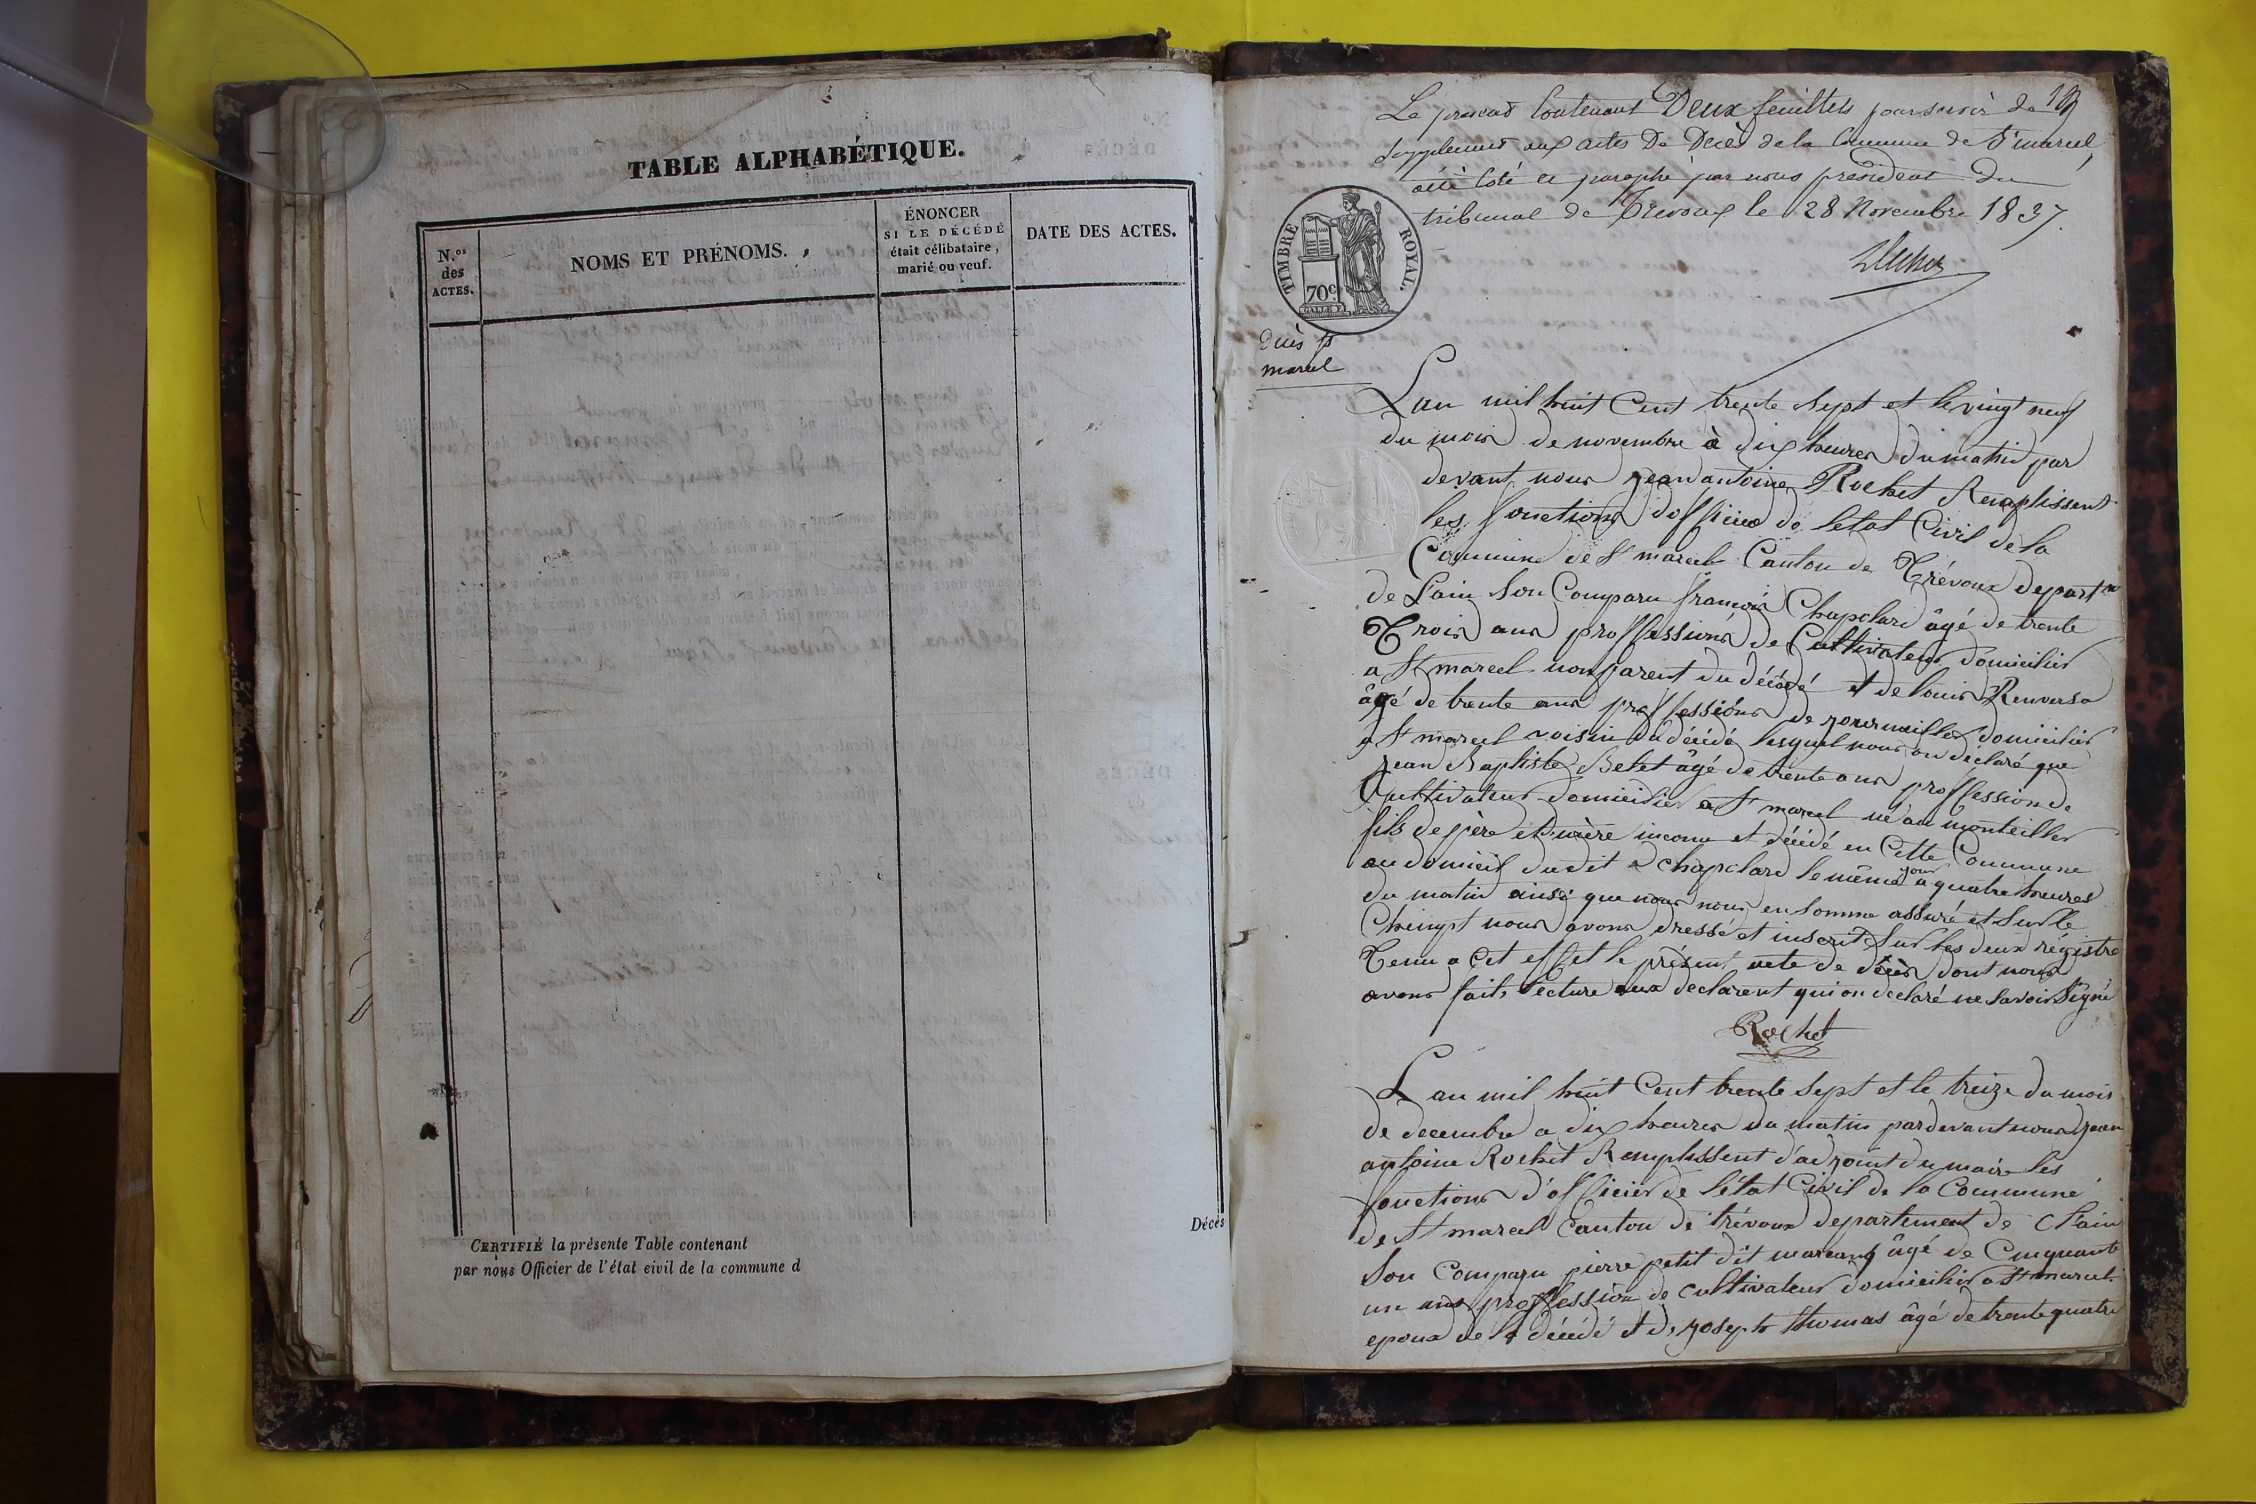 TABLE ALPHABÉTIQUE.
N.os des ACTES.
NOMS ET PRÉNOMS.
ÉNONCER
SI LE DÉCÉDÉ
était célibataire,
marié ou veuf.
DATE DES ACTES.
CERTIFIÉ la présente Table contenant
par nous Officier de l'état civil de la commune d
Décès
Le présent Contenant Deux feuillets pour servir de
supplement aux actes De Decès de la Commune de St marcel,
a été Coté et paraphé par nous président Du
tribunal de Trevoux le 28 Novembre 1837.
TIMBRE ROYAL.
70c.
Deces St
marcel
Lan mil huit Cent trente Sept et le vingt neuf
du mois de novembre à dix heures du matin par
devant nous jean antoine Rochet Remplissent
les fonctions d'officier de letat Civil de la
Commune de St marcel Canton de Trévoux depart.m
de Lain Son Comparu françois Chapelard âgé de trente
Trois ans proffessions de Cultivateur domicilier
a St marcel non parent du décédé et de louis Renverso
âgé de trente ans proffessions de journaillier domicilier
a St marcel voisin du décédé lesquel nous on déclaré que
jean Baptiste Behet âgé de trente ans proffession de
Cultivateur domicilier a St marcel né au monteiller
fils de père et mère inconu et décédé en Cette Commune
au domicil du dit Chapelard le même jour a quatre heures
du matin ainsi que nous nous en somme assuré et Sur le
Chempt nous avons dressé et inscrit Sur les deux régistre
Tenu a Cet effet le présent acte de décès dont nous
avons fait lecture aux declarent qui on declaré ne Savoir Signé
Rochet
Lan mil huit Cent trente Sept et le treize du mois
de decembre a dix heures du matin pardevant nous jean
antoine Rochet Remplissent d'adjoint du maire les
fonctions d'officier de l'état Civil de la Commune
de St marcel Canton de trévoux departement de Lain
Son Comparu pierre petit dit marcand âgé de Cinquante
un ans proffession de cultivateur domicilier a St marcel
epoux de la décédé et de joseph thomas âgé de trente quatre